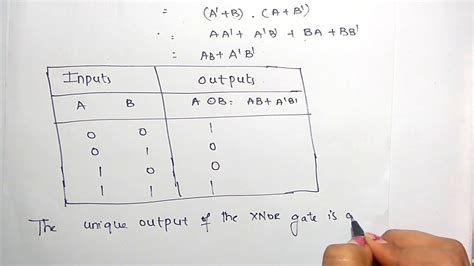 = (A'+B) . (A+B')
= AA' + A'B' + BA + BB'
= AB + A'B'
Inputs outputs
A B A ⊙ B = AB + A'B'
0 0 1
0 1 0
1 0 0
1 1 1
The unique output of the XNOR gate is a